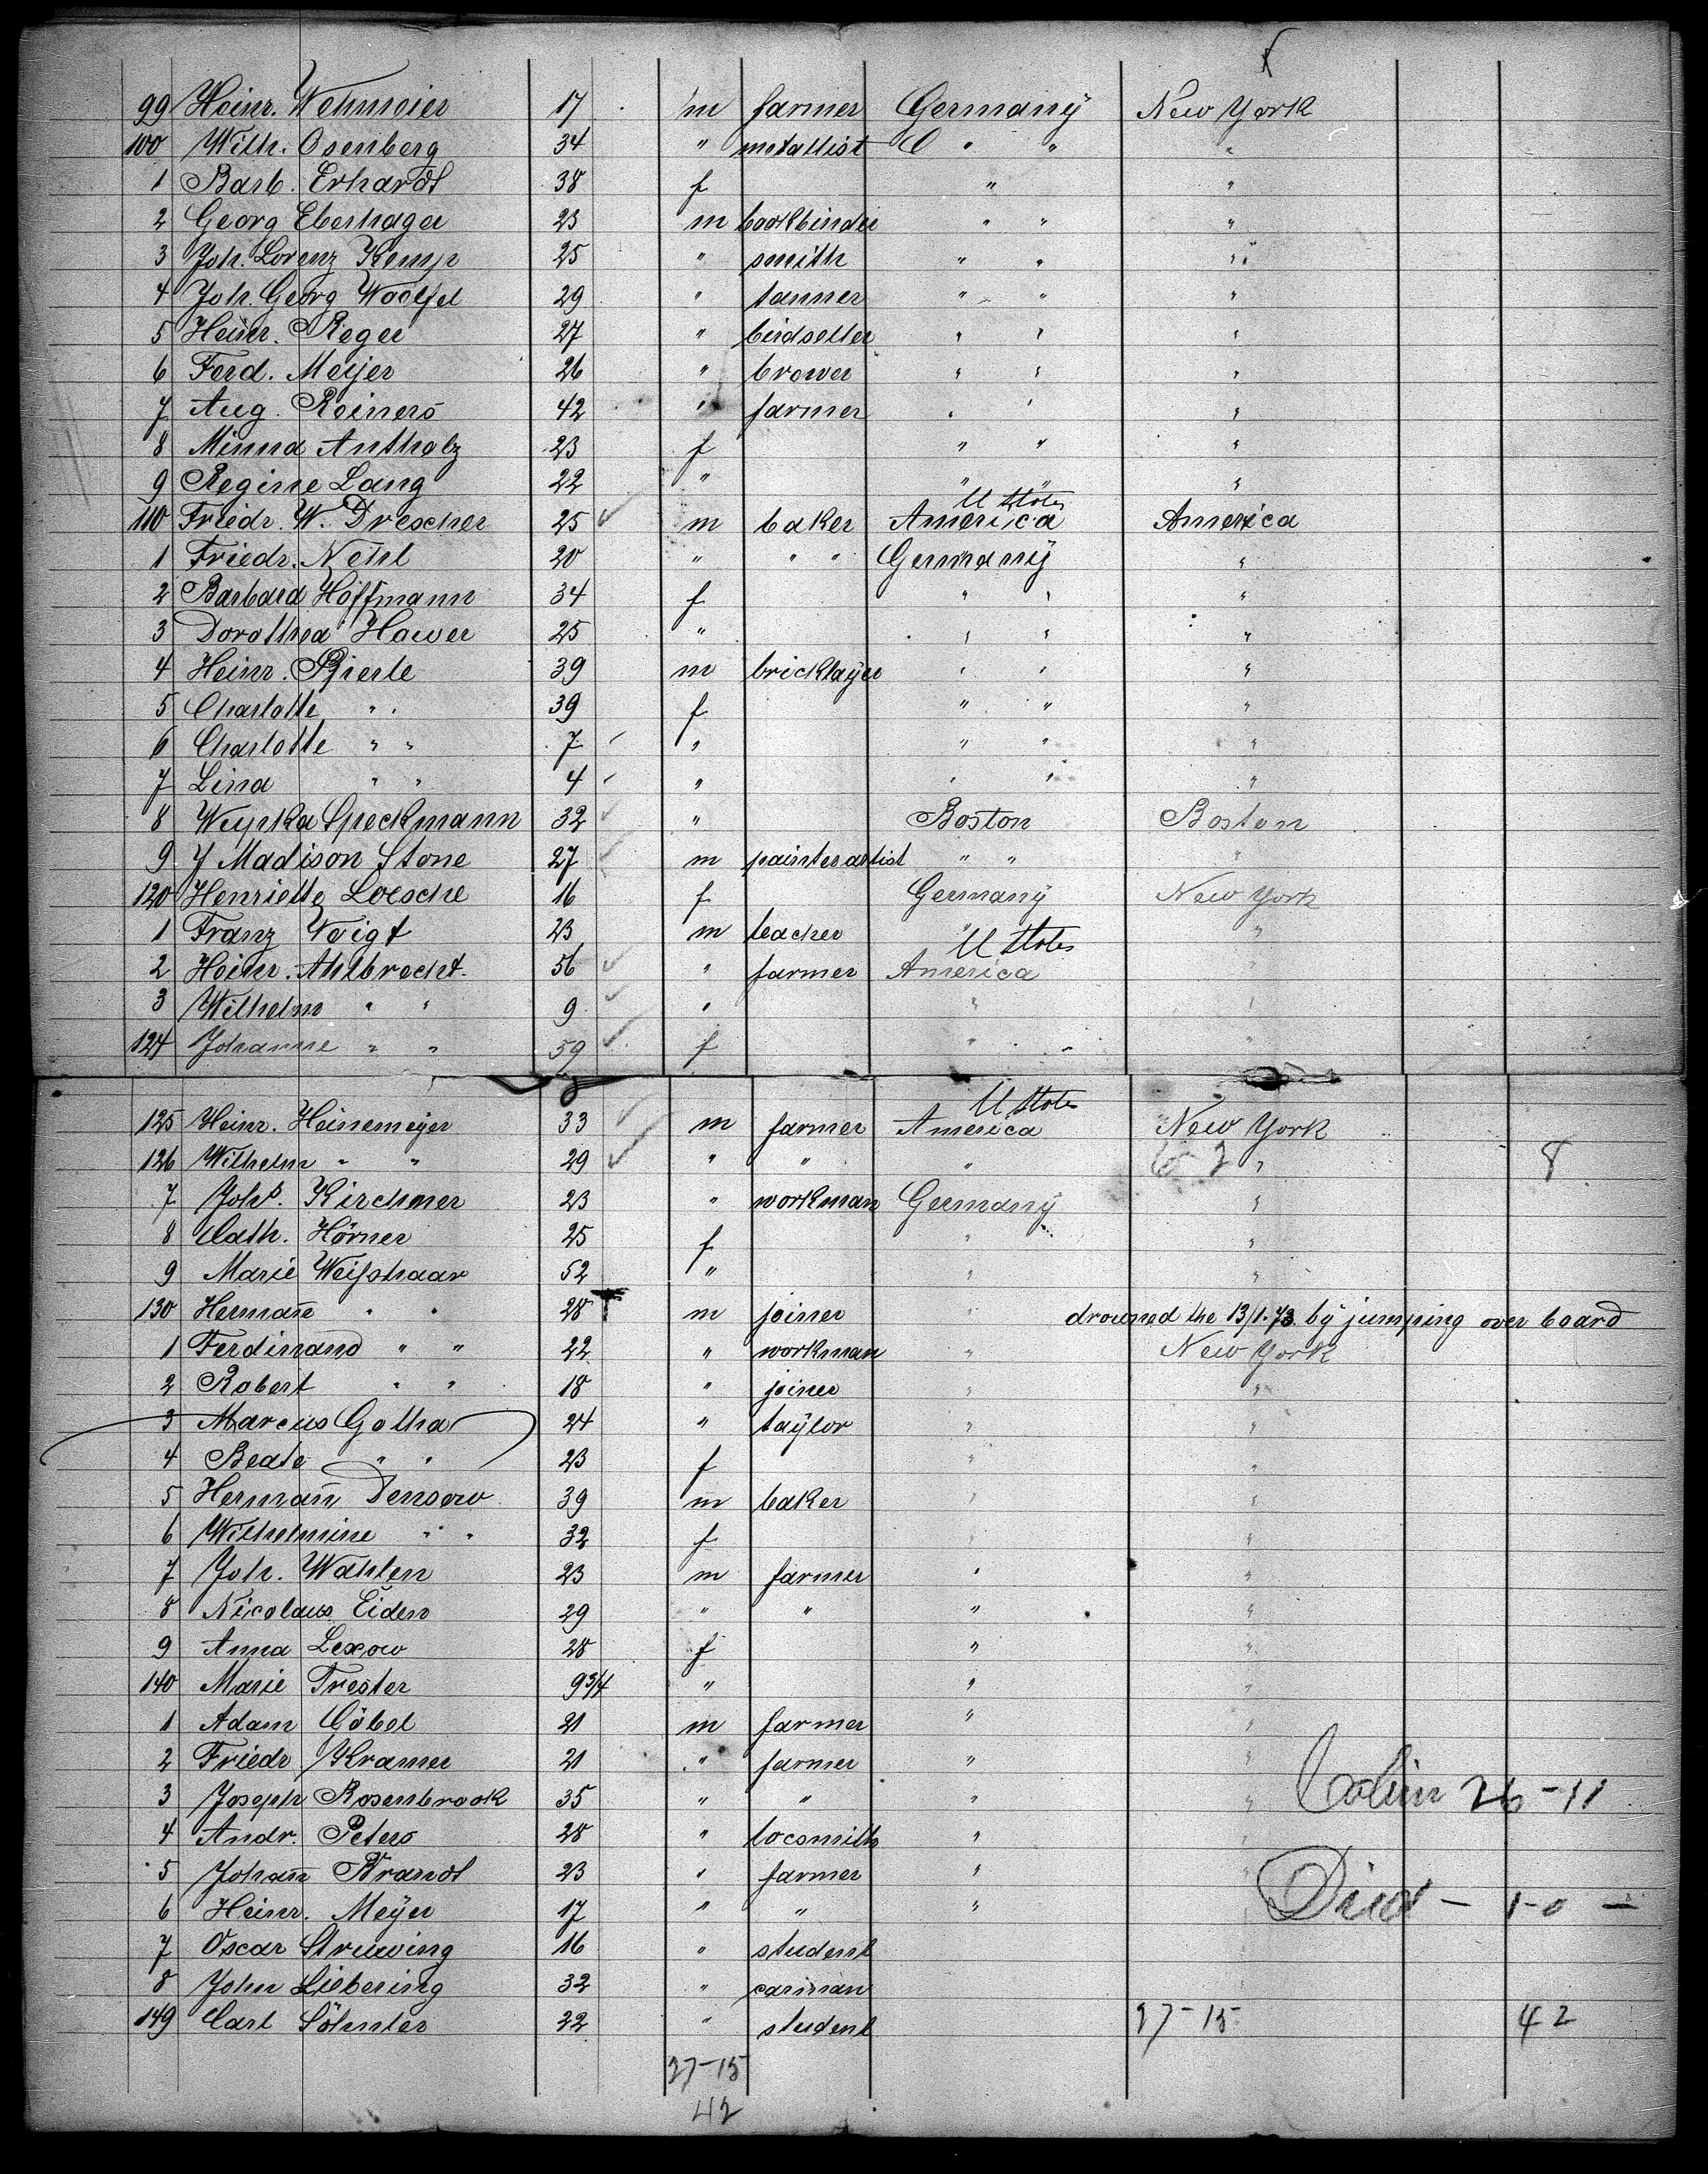 99 Heinr. Wehmeier 17 m farmer Germany New York
100 Wilh. Osenberg 34 " metallist " " "
1 Barb. Erhardt 38 f " "
2 Georg Eberhager 23 m bookbinder " " "
3 Joh. Lorenz Kemp 25 " smith " " "
4 Joh. Georg Woelfel 29 " tanner " " "
5 Heinr. Reger 27 " birdseller " " "
6 Ferd. Meijer 26 " brower " " "
7 Aug. Reiners 42 " farmer " " "
8 Minna Antholz 23 f " " "
9 Regine Lang 22 " " " "
U States
110 Friedr. W. Drescher 25 m baker America America
1 Friedr. Nehl 20 " " " Germany "
2 Barbara Hoffmann 34 f " " "
3 Dorothea Hower 25 " " " "
4 Heinr. 39 m bricklayer " " "
5 Charlotte " " 39 f " " "
6 Charlotte " " 7 " " " "
7 Lina " " 4 " " " "
8 Speckmann 32 " Boston Boston
9 J Madison Stone 27 m painter artist " " "
120 Henriette Loesche 16 f Germany New York
1 Franz Voigt 23 m teacher " "
U States
2 Heinr. Ahlbrecht 56 " farmer America "
3 Wilhelm " " 9 " " "
124 Johanne " " 59 f " " "
U States
125 Heinr. Heinemeijer 33 m farmer America New York
126 Wilhelm " " 29 " " " " 8
7 Johs. Kirchner 23 " workman Germany "
8 Cath. Hörner 25 f " "
9 Marie Weisshaar 52 " " "
130 Hermañ " " 28 m joiner " drowned the 13/1.73 by jumping over board
1 Ferdinand " " 22 " workman " New York
2 Robert " " 18 " joiner " "
3 Marcus Gotha 24 " taylor " "
4 Beate " " 23 f " "
5 Hermañ Densow 39 m baker " "
6 Wilhelmine " " 32 f " "
7 Joh. Wahlen 23 m farmer " "
8 Nicolaus Eiden 29 " " " "
9 Anna Lexow 28 f " "
140 Marie Trester 9 3/4 " " "
1 Adam Göbel 21 m farmer " "
2 Friedr Kramer 21 " farmer " "
3 Joseph Rosenbrook 35 " " " " 26-11
4 Andr. Peters 28 " locsmith " "
5 Johañ Brandt 23 " farmer " "
6 Heinr. Meÿer 17 " " " Died - 1-0 -
7 Oscar Struwing 16 " student
8 John Liebering 32 " carman
149 Carl Söhnter 22 " student 27-15 42
27-15
42